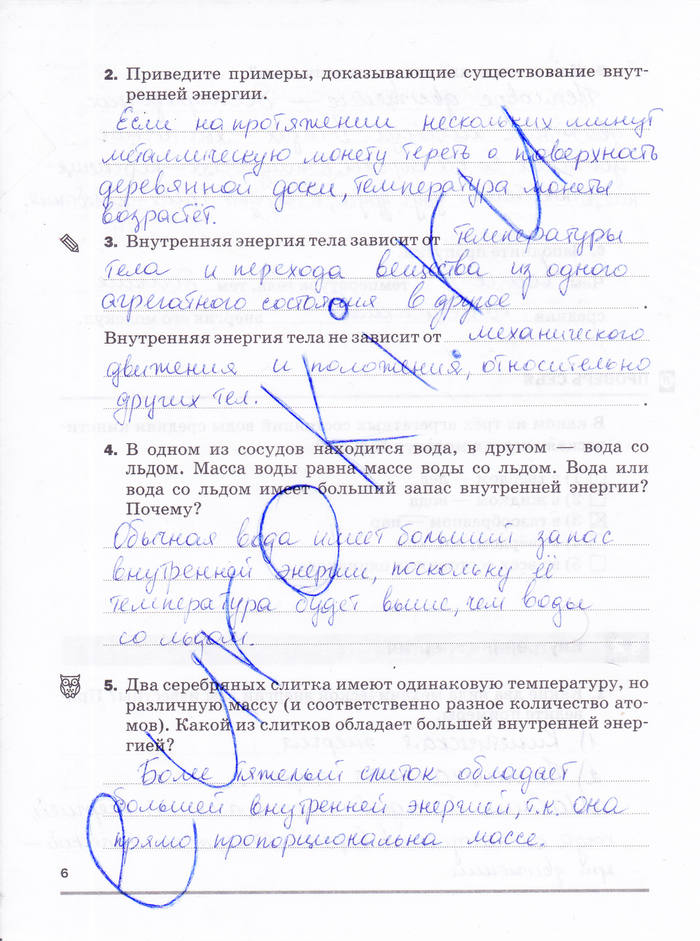 2. Приведите примеры, доказывающие существование внут-
ренней энергии.
Если на протяжении нескольких минут
металлическую монету тереть о поверхность
деревянной доски, температура монеты
возрастёт.
3. Внутренняя энергия тела зависит от температуры
тела и перехода вещества из одного
агрегатного состояния в другое .
Внутренняя энергия тела не зависит от механического
движения и положения, относительно
других тел. .
4. В одном из сосудов находится вода, в другом — вода со
льдом. Масса воды равна массе воды со льдом. Вода или
вода со льдом имеет больший запас внутренней энергии?
Почему?
Обычная вода имеет больший запас
внутренней энергии, поскольку её
температура будет выше, чем воды
со льдом.
5. Два серебряных слитка имеют одинаковую температуру, но
различную массу (и соответственно разное количество ато-
мов). Какой из слитков обладает большей внутренней энер-
гией?
Более тяжелый слиток обладает
большей внутренней энергией, т.к. она
прямо пропорциональна массе.
6